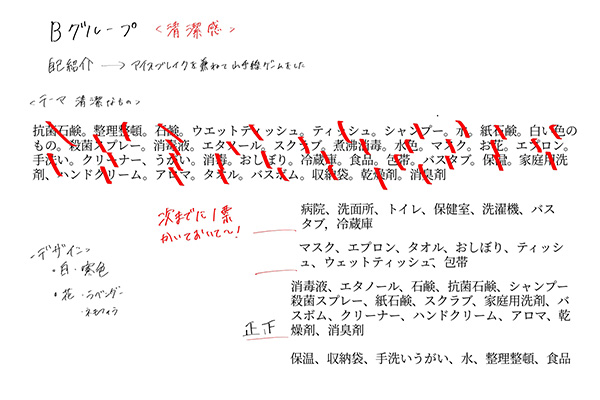 Bグループ <清潔感>
自己紹介 → アイスブレイクを兼ねて山手線ゲームをした
<テーマ 清潔なもの>
抗菌石鹸。整理整頓。石鹸。ウエットティッシュ。ティッシュ。シャンプー。水。紙石鹸。白い色の
もの。殺菌スプレー。消毒液。エタノール。スクラブ。煮沸消毒。水色。マスク。お花。エプロン。
手洗い。クリーナー、うがい。消毒。おしぼり。冷蔵庫。食品。包帯。バスタブ。保温。家庭用洗
剤、ハンドクリーム。アロマ。タオル。バスボム。収納袋。乾燥剤。消臭剤
次までに1票
かいておいて〜!
病院、洗面所、トイレ、保健室、洗濯機、バス
タブ，冷蔵庫
マスク、エプロン、タオル、おしぼり、ティッシ
ュ、ウェットティッシュ、包帯
<デザイン>
・白・寒色
・花・ラベンダー
・ネモフィラ
消毒液、エタノール、石鹸、抗菌石鹸、シャンプー
殺菌スプレー、紙石鹸、スクラブ、家庭用洗剤、バ
スボム、クリーナー、ハンドクリーム、アロマ、乾
燥剤、消臭剤
正下
保温、収納袋、手洗いうがい、水、整理整頓、食品